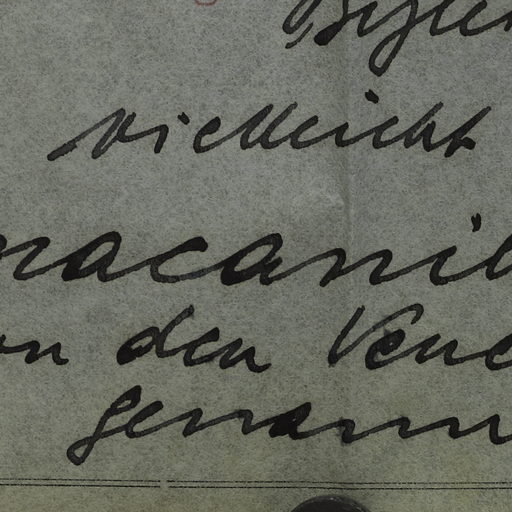 vielleicht
macanil
on den Vene
genann